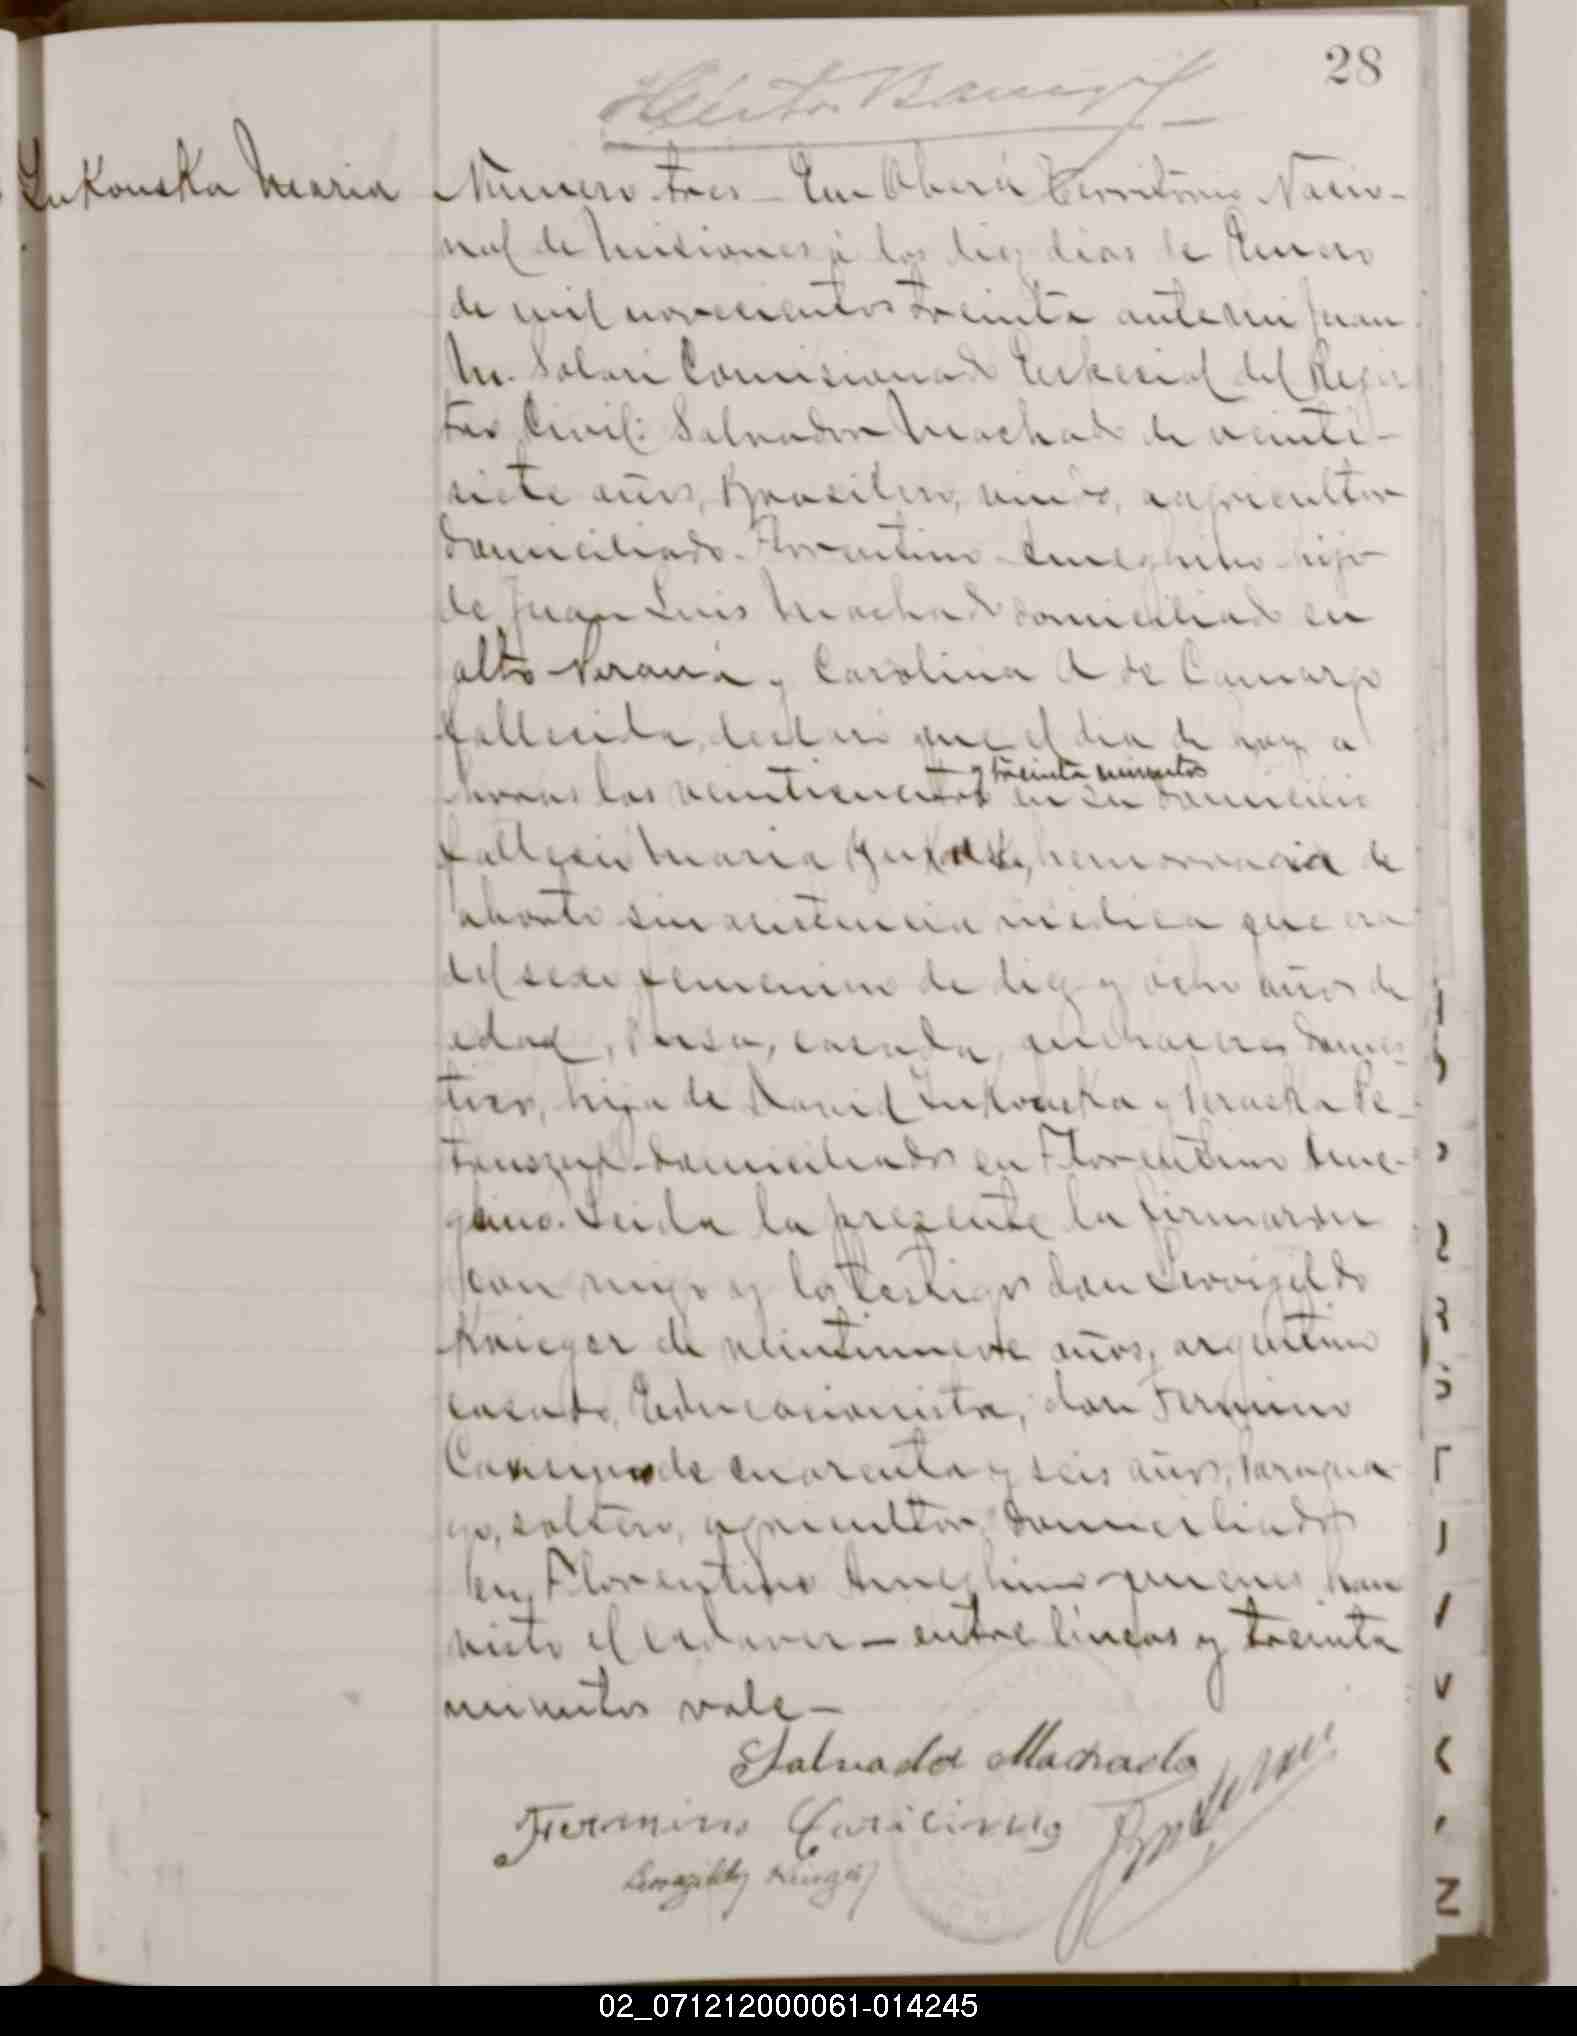 28
Lukouska Maria
Número tres — En Oberá Territorio Nacio-
nal de Misiones á los diez dias de Enero
de mil novecientos treinta ante mi Juan
M. Solari Comisionado Especial del Regis
tro Civil: Salvador Machado de veinti-
siete años, Brasilero, viudo, agricultor
domiciliado Florentino Ameghino hijo
de Juan Luis Machado domiciliado en
alto Paraná y Carolina A de Camargo
fallecida, declaró que el dia de hoy a
y treinta minutos
horas las en su domicilio
falleció Maria hemorragia de
aborto sin asistencia médica que era
del sexo femenino de diez y ocho años de
edad, Rusa, casada, quehaceres domes-
tico, hija de David Lukouska y Pe-
domiciliados en Florentino Ame-
ghino. Leida la presente la firmaron
con migo y los testigos don Leovigildo
Krieger de veintinueve años, argentino
casado, Educacionista, don Fermino
de cuarenta y seis años, Paragua-
yo, soltero, agricultor, domiciliados
en Florentino Ameghino quienes han
visto el cadaver — entre líneas y treinta
minutos vale —
Salvador Machado
Fermino
Leovigildo Krieger
02_071212000061-014245